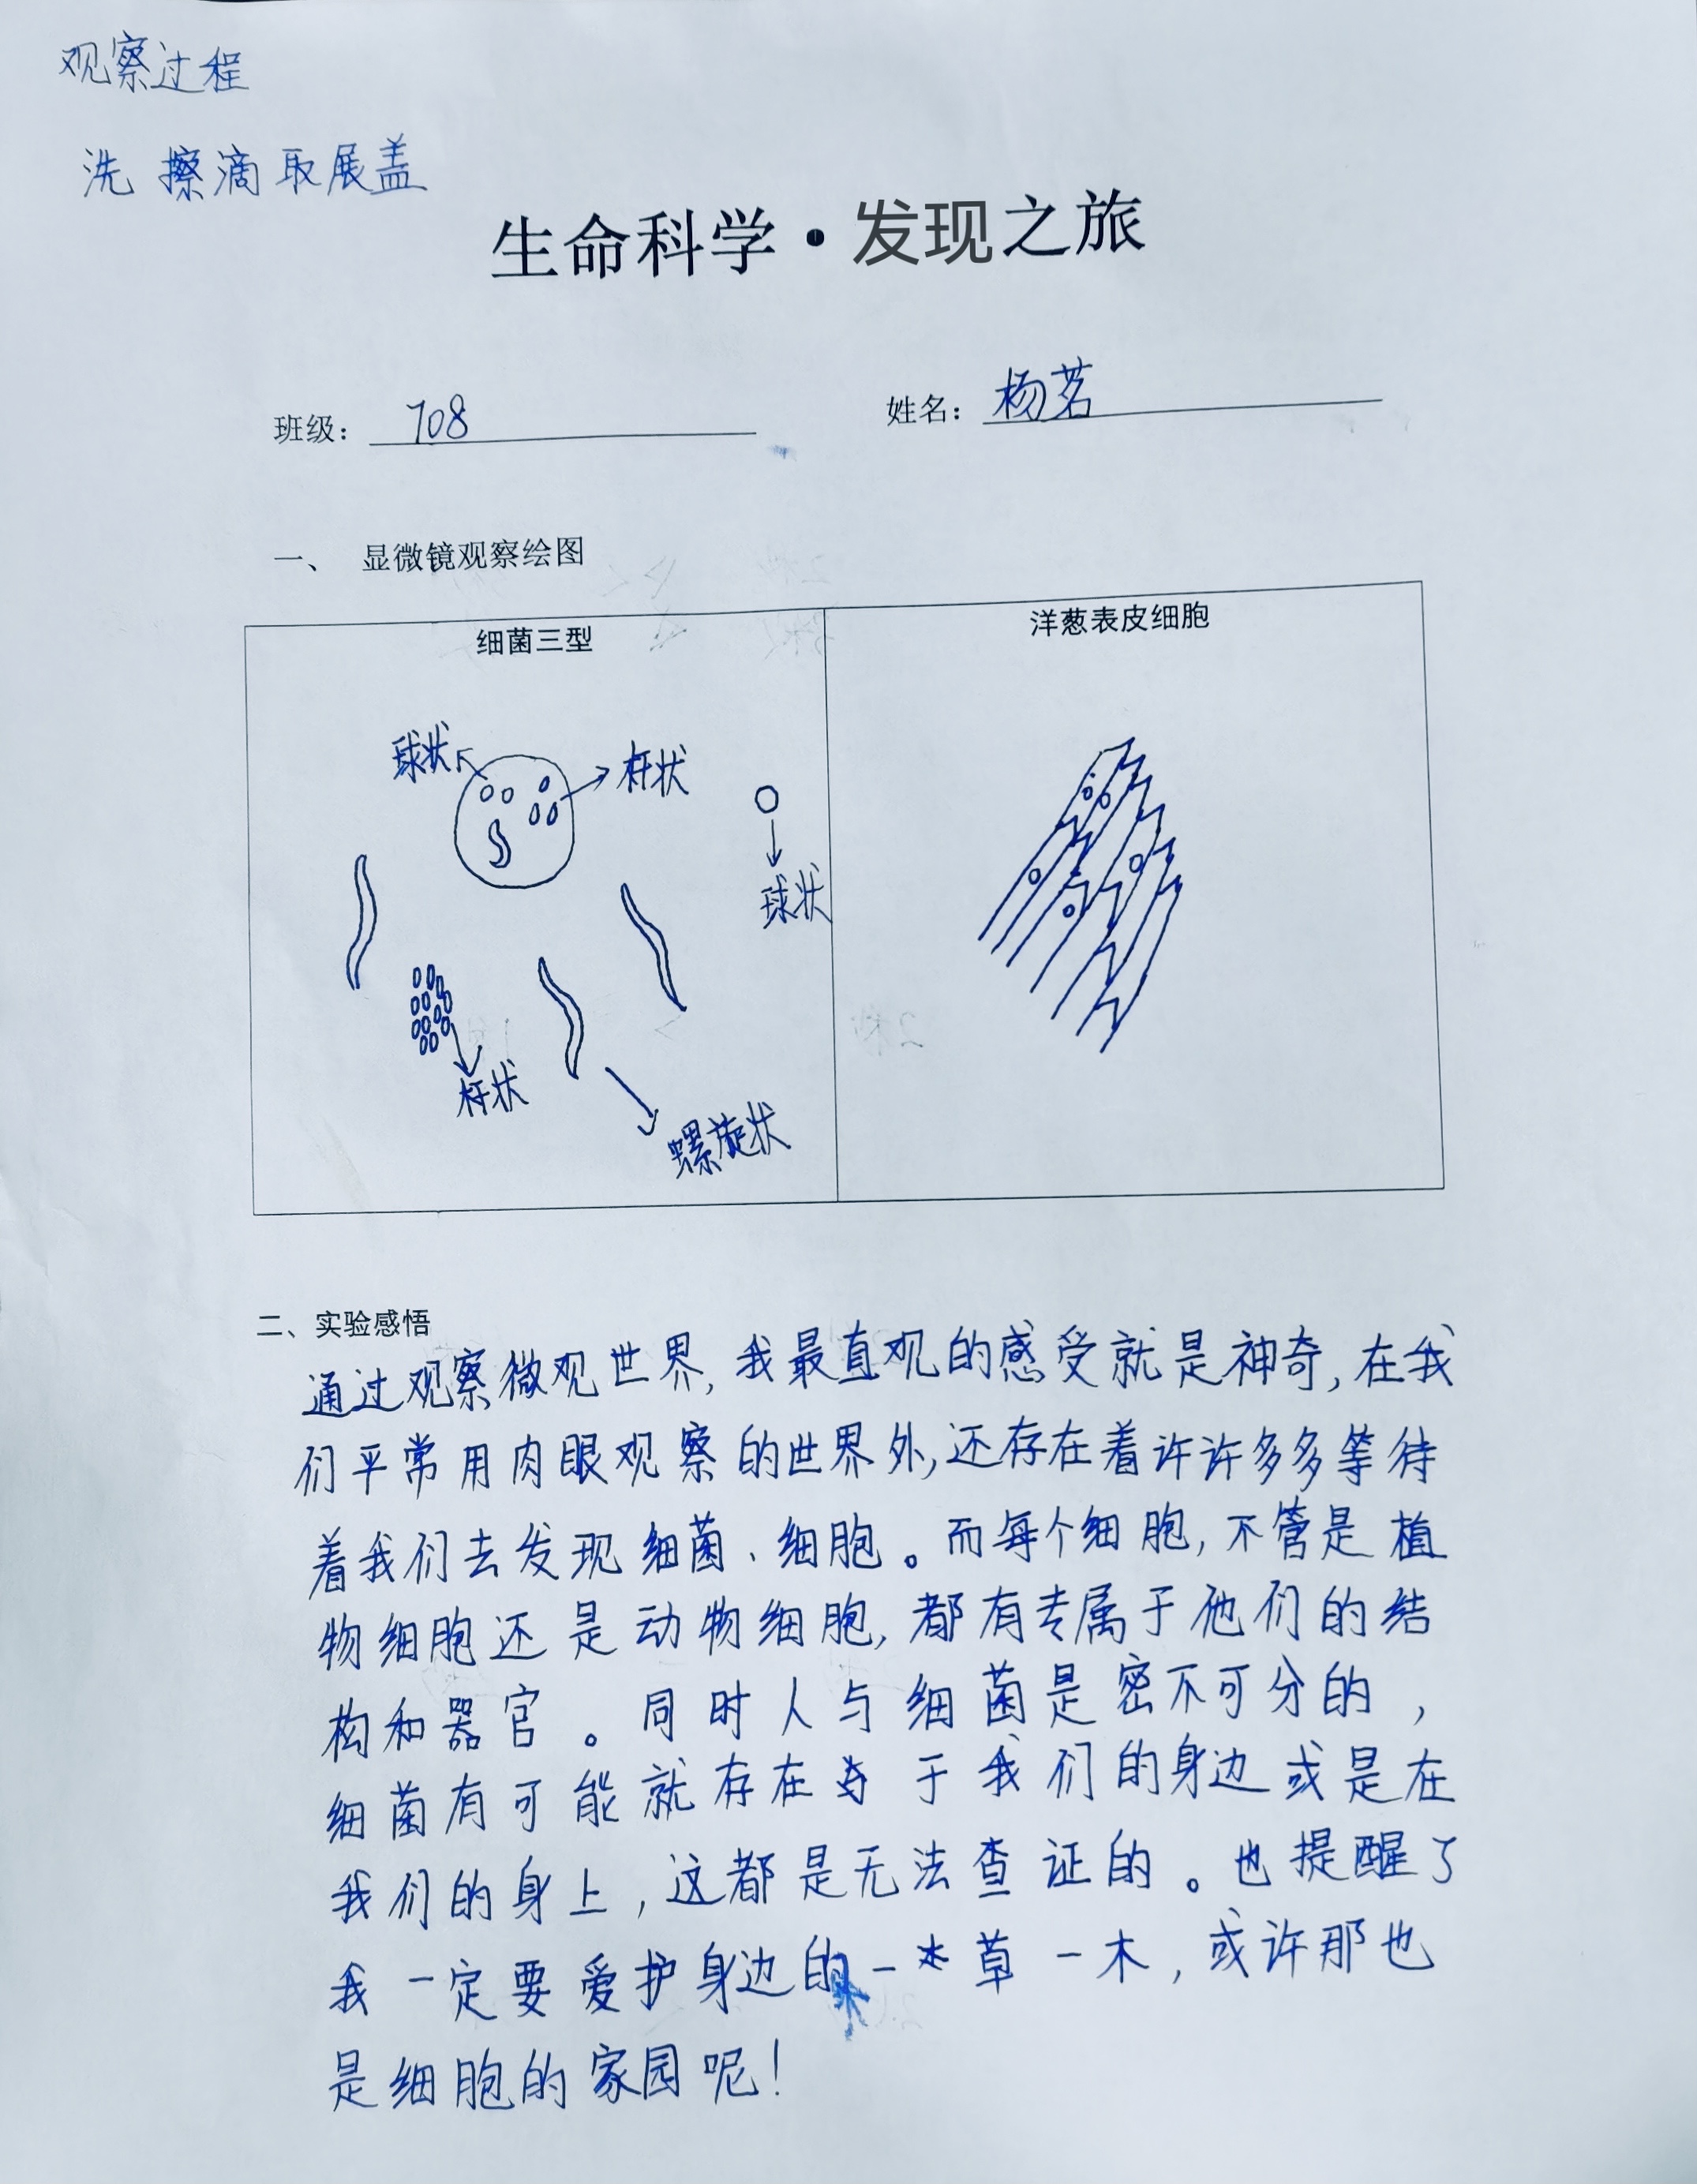 观察过程
洗 擦滴取展盖
生命科学·发现之旅
班级： 708 姓名： 杨茗
一、 显微镜观察绘图
细菌三型 洋葱表皮细胞
球状 杆状
球状
杆状
螺旋状
二、实验感悟
通过观察微观世界,我最直观的感受就是神奇,在我
们平常用肉眼观察的世界外,还存在着许许多多等待
着我们去发现细菌、细胞。而每个细胞,不管是植
物细胞还是动物细胞,都有专属于他们的结
构和器官。同时人与细菌是密不可分的，
细菌有可能就存在于我们的身边或是在
我们的身上，这都是无法查证的。也提醒了
我一定要爱护身边的一草一木，或许那也
是细胞的家园呢！